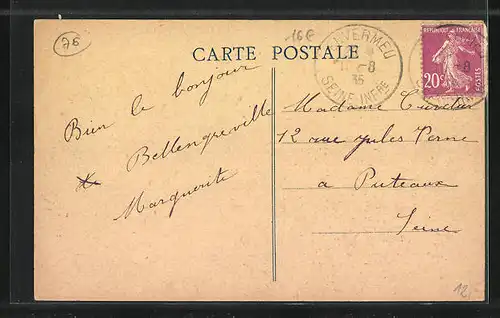 76
16€
CARTE POSTALE
ENVERMEU
-8
35
SEINE INFRE
REPUBLIQUE FRANÇAISE
20c
POSTES
Bien le bonjour
Bellengreville
Marguerite
Madame
12 rue Jules Verne
a Puteaux
Seine
12